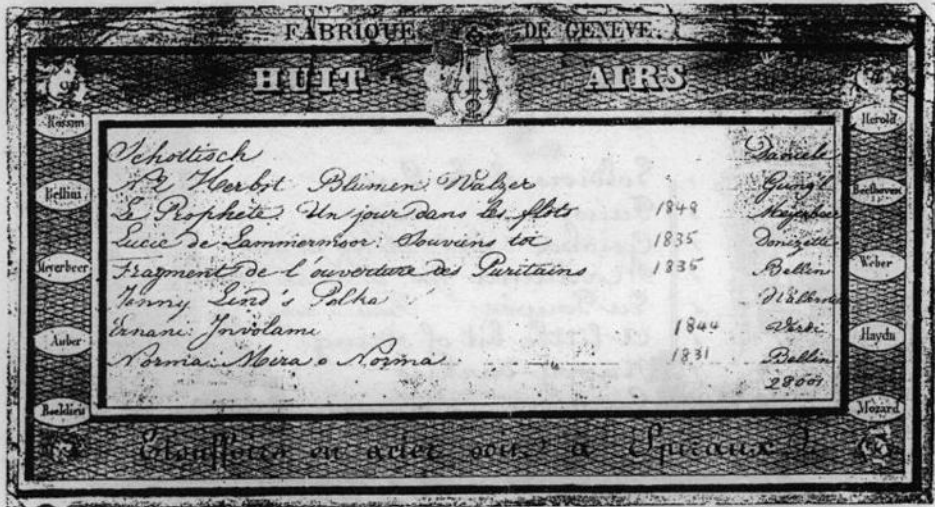 FABRIQUE DE GENÈVE.
HUIT AIRS
Rossini
Bellini
Meyerbeer
Auber
Boeldieu
Herold
Beethoven
Weber
Haydn
Mozard
Schottisch Daniele
No 2 Herbst Blumen Walzer Gung'l
Le Prophète. Un jour dans les flots 1849 Meyerbeer
Lucie de Lammermoor. Souviens toi 1835 Donizetti
Fragment de l'ouverture des Puritains 1835 Bellin
Jenny Lind's Polka
Ernani. Involami 1844 Verdi
Norma. Mira o Norma 1831 Bellin
28001
Etouffoirs en acier à Spiraux